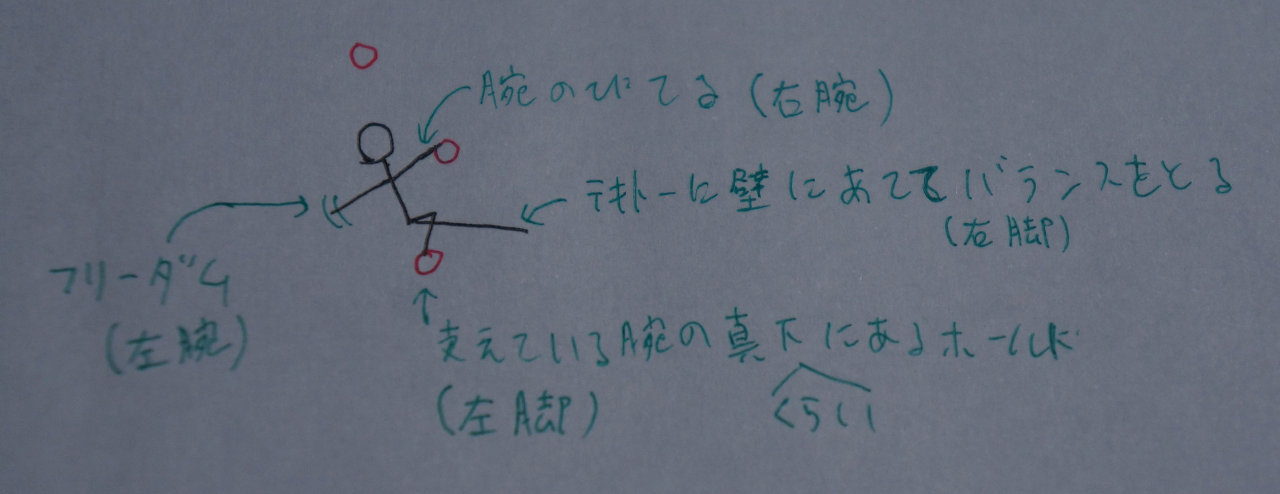 腕のびてる(右腕)
テキトーに壁にあててバランスをとる
(右脚)
フリーダム
(左腕)
支えている腕の真下にあるホールド
くらい
(左脚)